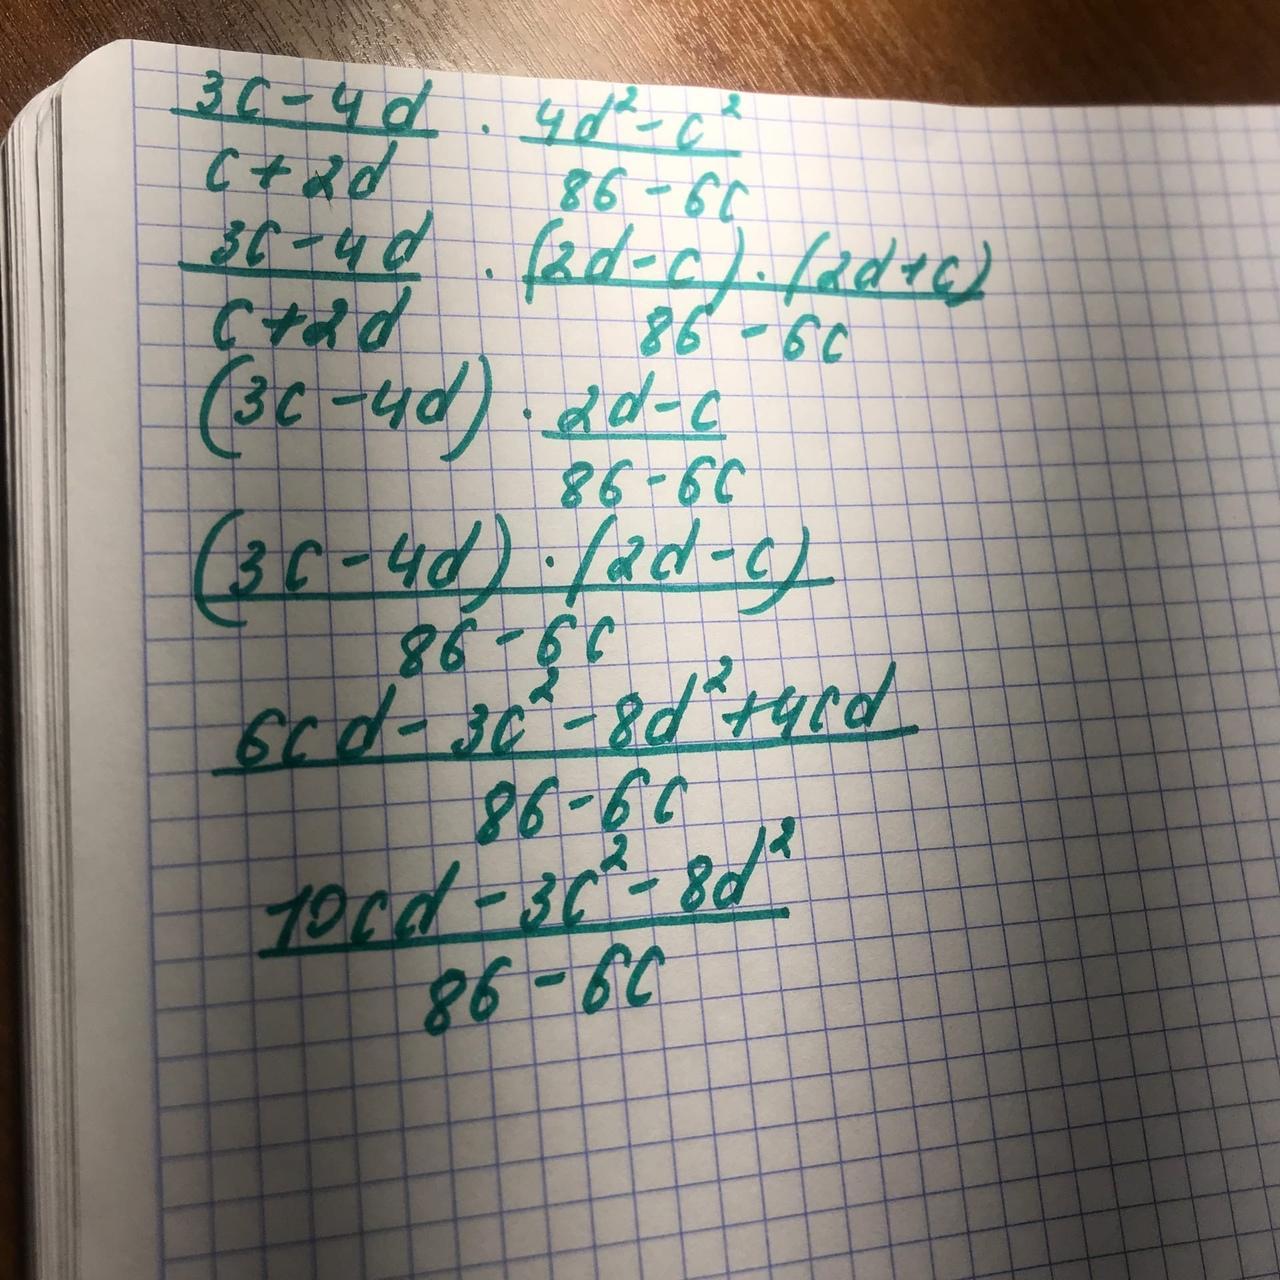 3c-4d / c+2d · 4d²-c² / 86-6c
3c-4d / c+2d · (2d-c)·(2d+c) / 86-6c
(3c-4d) · 2d-c / 86-6c
(3c-4d)·(2d-c) / 86-6c
6cd-3c²-8d²+4cd / 86-6c
10cd-3c²-8d² / 86-6c